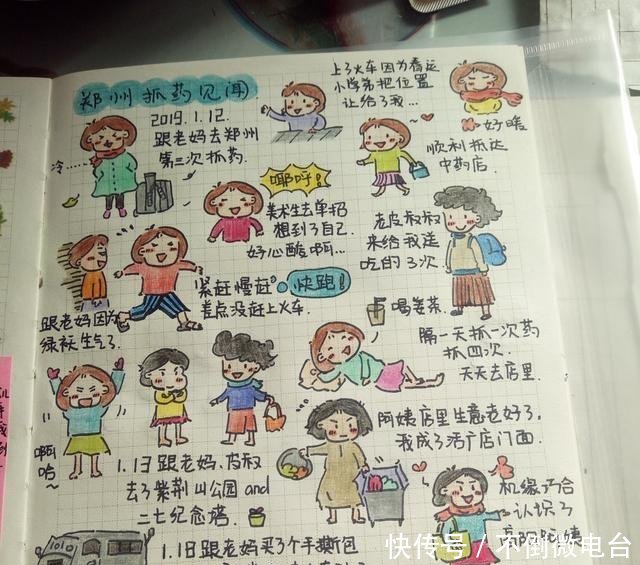 郑州抓药见闻
2019.1.12.
跟老妈去郑州
第三次抓药.
冷……
上了火车因为春运
小学弟把位置
让给了我…
好暖
顺利抵达
中药店.
耶呼!
美术生去单招
想到了自己.
好心酸啊…
老皮叔叔
来给我送
吃的了次
紧赶慢赶
快跑!
差点没赶上火车.
跟老妈因为
绿袄生气了.
喝姜茶.
隔一天抓一次药
抓四次.
天天去店里.
啊
哈~
阿姨店里生意老好了,
我成了活广店门面.
1.13跟老妈、皮叔
去了紫荆山公园and
二七纪念塔.
机缘巧合
认识了
1.18跟老妈买3个手撕包
快传号/不倒微电台